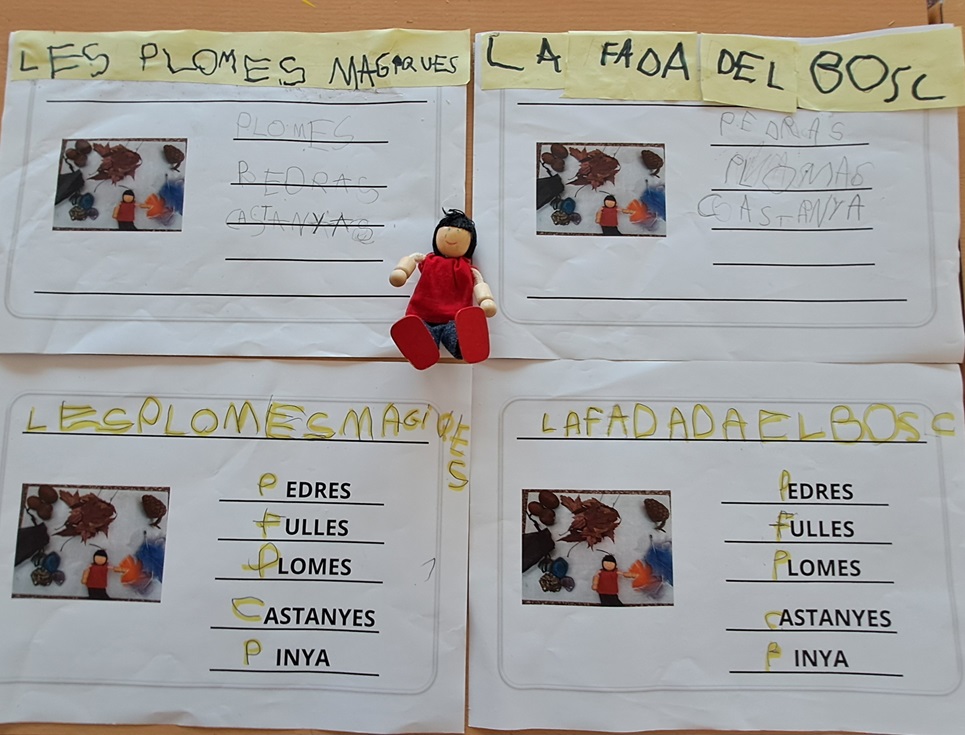 LES PLOMES MAGIQUES
PLOMES
PEDRAS
CASTANYAS
LA FADA DEL BOSC
PEDRAS
PLOMAS
COASTANYA
LESPLOMESMAGIQUES
PEDRES
FULLES
PLOMES
CASTANYES
PINYA
LAFADADAELBOSC
PEDRES
FULLES
PLOMES
CASTANYES
PINYA